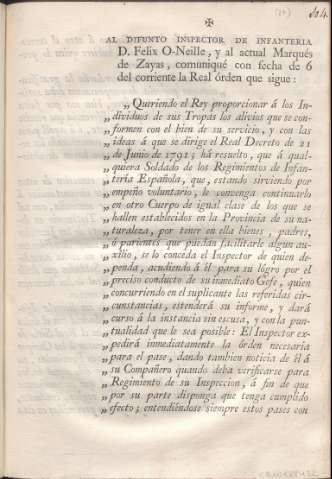 ✠
AL DIFUNTO INSPECTOR DE INFANTERIA
D. Felix O-Neille, y al actual Marqués
de Zayas, comuniqué con fecha de 6
del corriente la Real órden que sigue:
„Queriendo el Rey proporcionar á los In-
„dividuos de sus Tropas los alivios que se con-
„formen con el bien de su servicio, y con las
„ideas á que se dirige el Real Decreto de 21
„de Junio de 1791; há resuelto, que á qual-
„quiera Soldado de los Regimientos de Infan-
„tería Española, que, estando sirviendo por
„empeño voluntario, le convenga continuarlo
„en otro Cuerpo de igual clase de los que se
„hallen establecidos en la Provincia de su na-
„turaleza, por tener en ella bienes, padres,
„ó parientes que puedan facilitarle algun au-
„xîlio, se lo conceda el Inspector de quien de-
„penda, acudiendo á él para su lógro por el
„preciso conducto de su inmediato Gefe, quien
„concurriendo en el suplicante las referidas cir-
„cunstancias, estenderá su informe, y dará
„curso á la instancia sin escusa, y con la pun-
„tualidad que le sea posible: El Inspector ex-
„pedirá inmediatamente la órden necesaria
„para el pase, dando tambien noticia de él á
„su Compañero quando deba verificarse para
„Regimiento de su Inspeccion, á fin de que
„por su parte disponga que tenga cumplido
„efecto; entendiéndose siempre estos pases con